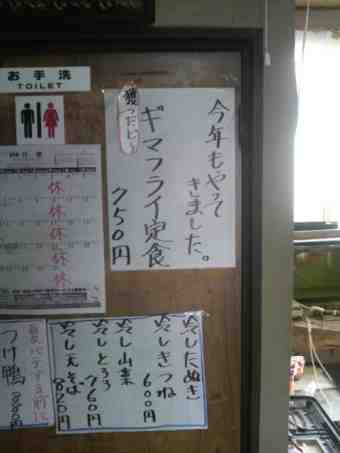 お手洗
TOILET
今年もやって
きました。
獲ったど〜
ギマフライ定食
750円
休
休
休
休
休
冷したぬき
冷しきつね
600円
冷し山菜
冷しとろろ
760円
冷し天そば
820円
つけ鴨